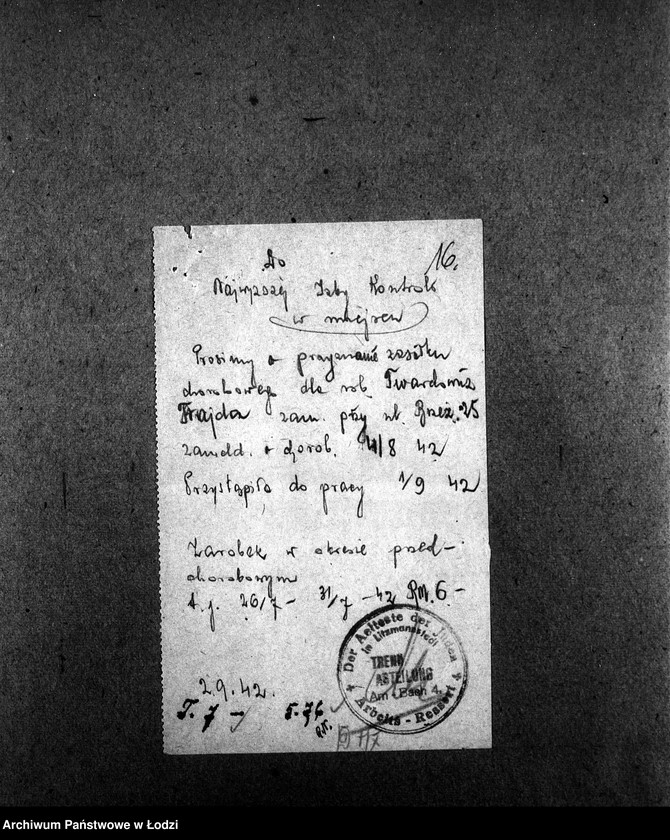 16.
Do
Najwyższej Izby Kontroli
w miejscu
Prosimy o przyznanie zasiłku
chorobowego dla rob. Twardowicz
Frajda zam. przy ul. Brzez. 25
zameld. o chorob. 4/8 42
Przystąpiła do pracy 1/9 42
Zarobek w okresie przed-
chorobowym
t. j. 26/7 - 31/7 - 42 RM. 6 -
Der Aelteste der Juden
in Litzmannstadt
TRENN
ABTEILUNG
Am - Bach 4.
Arbeits - Ressort
2.9.42.
T. 7 - 5.76
Archiwum Państwowe w Łodzi